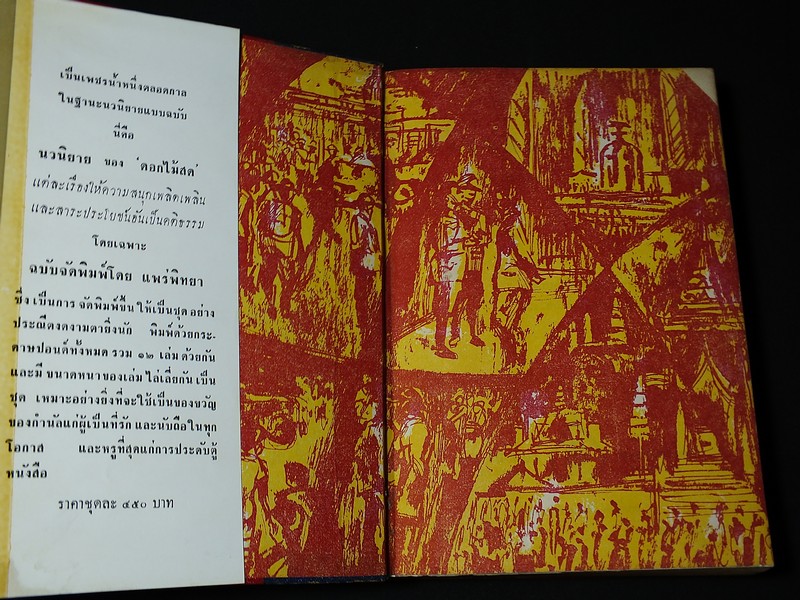 เป็นเพชรน้ำหนึ่งตลอดกาล
ในฐานะนวนิยายแบบฉบับ
นี่คือ
นวนิยาย ของ 'ดอกไม้สด'
แต่ละเรื่องให้ความสนุกเพลิดเพลิน
และสาระประโยชน์อันเป็นคติธรรม
โดยเฉพาะ
ฉบับจัดพิมพ์โดย แพร่พิทยา
ซึ่งเป็นการจัดพิมพ์ขึ้นให้เป็นชุดอย่าง
ประณีตงดงามตายิ่งนัก พิมพ์ด้วยกระ-
ดาษปอนด์ทั้งหมด รวม ๑๒ เล่มด้วยกัน
และมีขนาดหนาของเล่มไล่เลี่ยกันเป็น
ชุด เหมาะอย่างยิ่งที่จะใช้เป็นของขวัญ
ของกำนัลแก่ผู้เป็นที่รัก และนับถือในทุก
โอกาส และหรูที่สุดแก่การประดับตู้
หนังสือ
ราคาชุดละ ๔๕๐ บาท